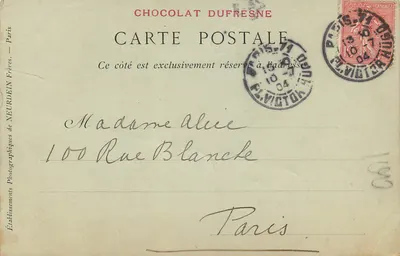 CHOCOLAT DUFRESNE
CARTE POSTALE
Ce côté est exclusivement réservé à l'adresse
PARIS-71
10-7
04
PL.VICTOR HUGO
PARIS-71
10-7
04
PL.VICTOR HUGO
Madame Alice
100 Rue Blanche
Paris
Établissements Photographiques de NEURDEIN Frères. — Paris